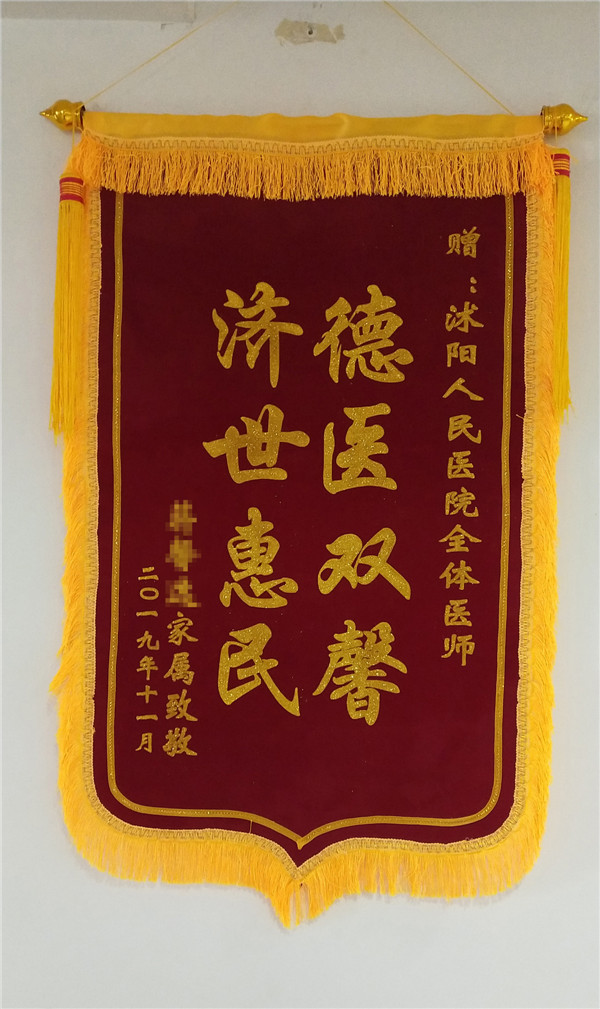 赠：沭阳人民医院全体医师
德医双馨
济世惠民
家属致敬
二〇一九年十一月